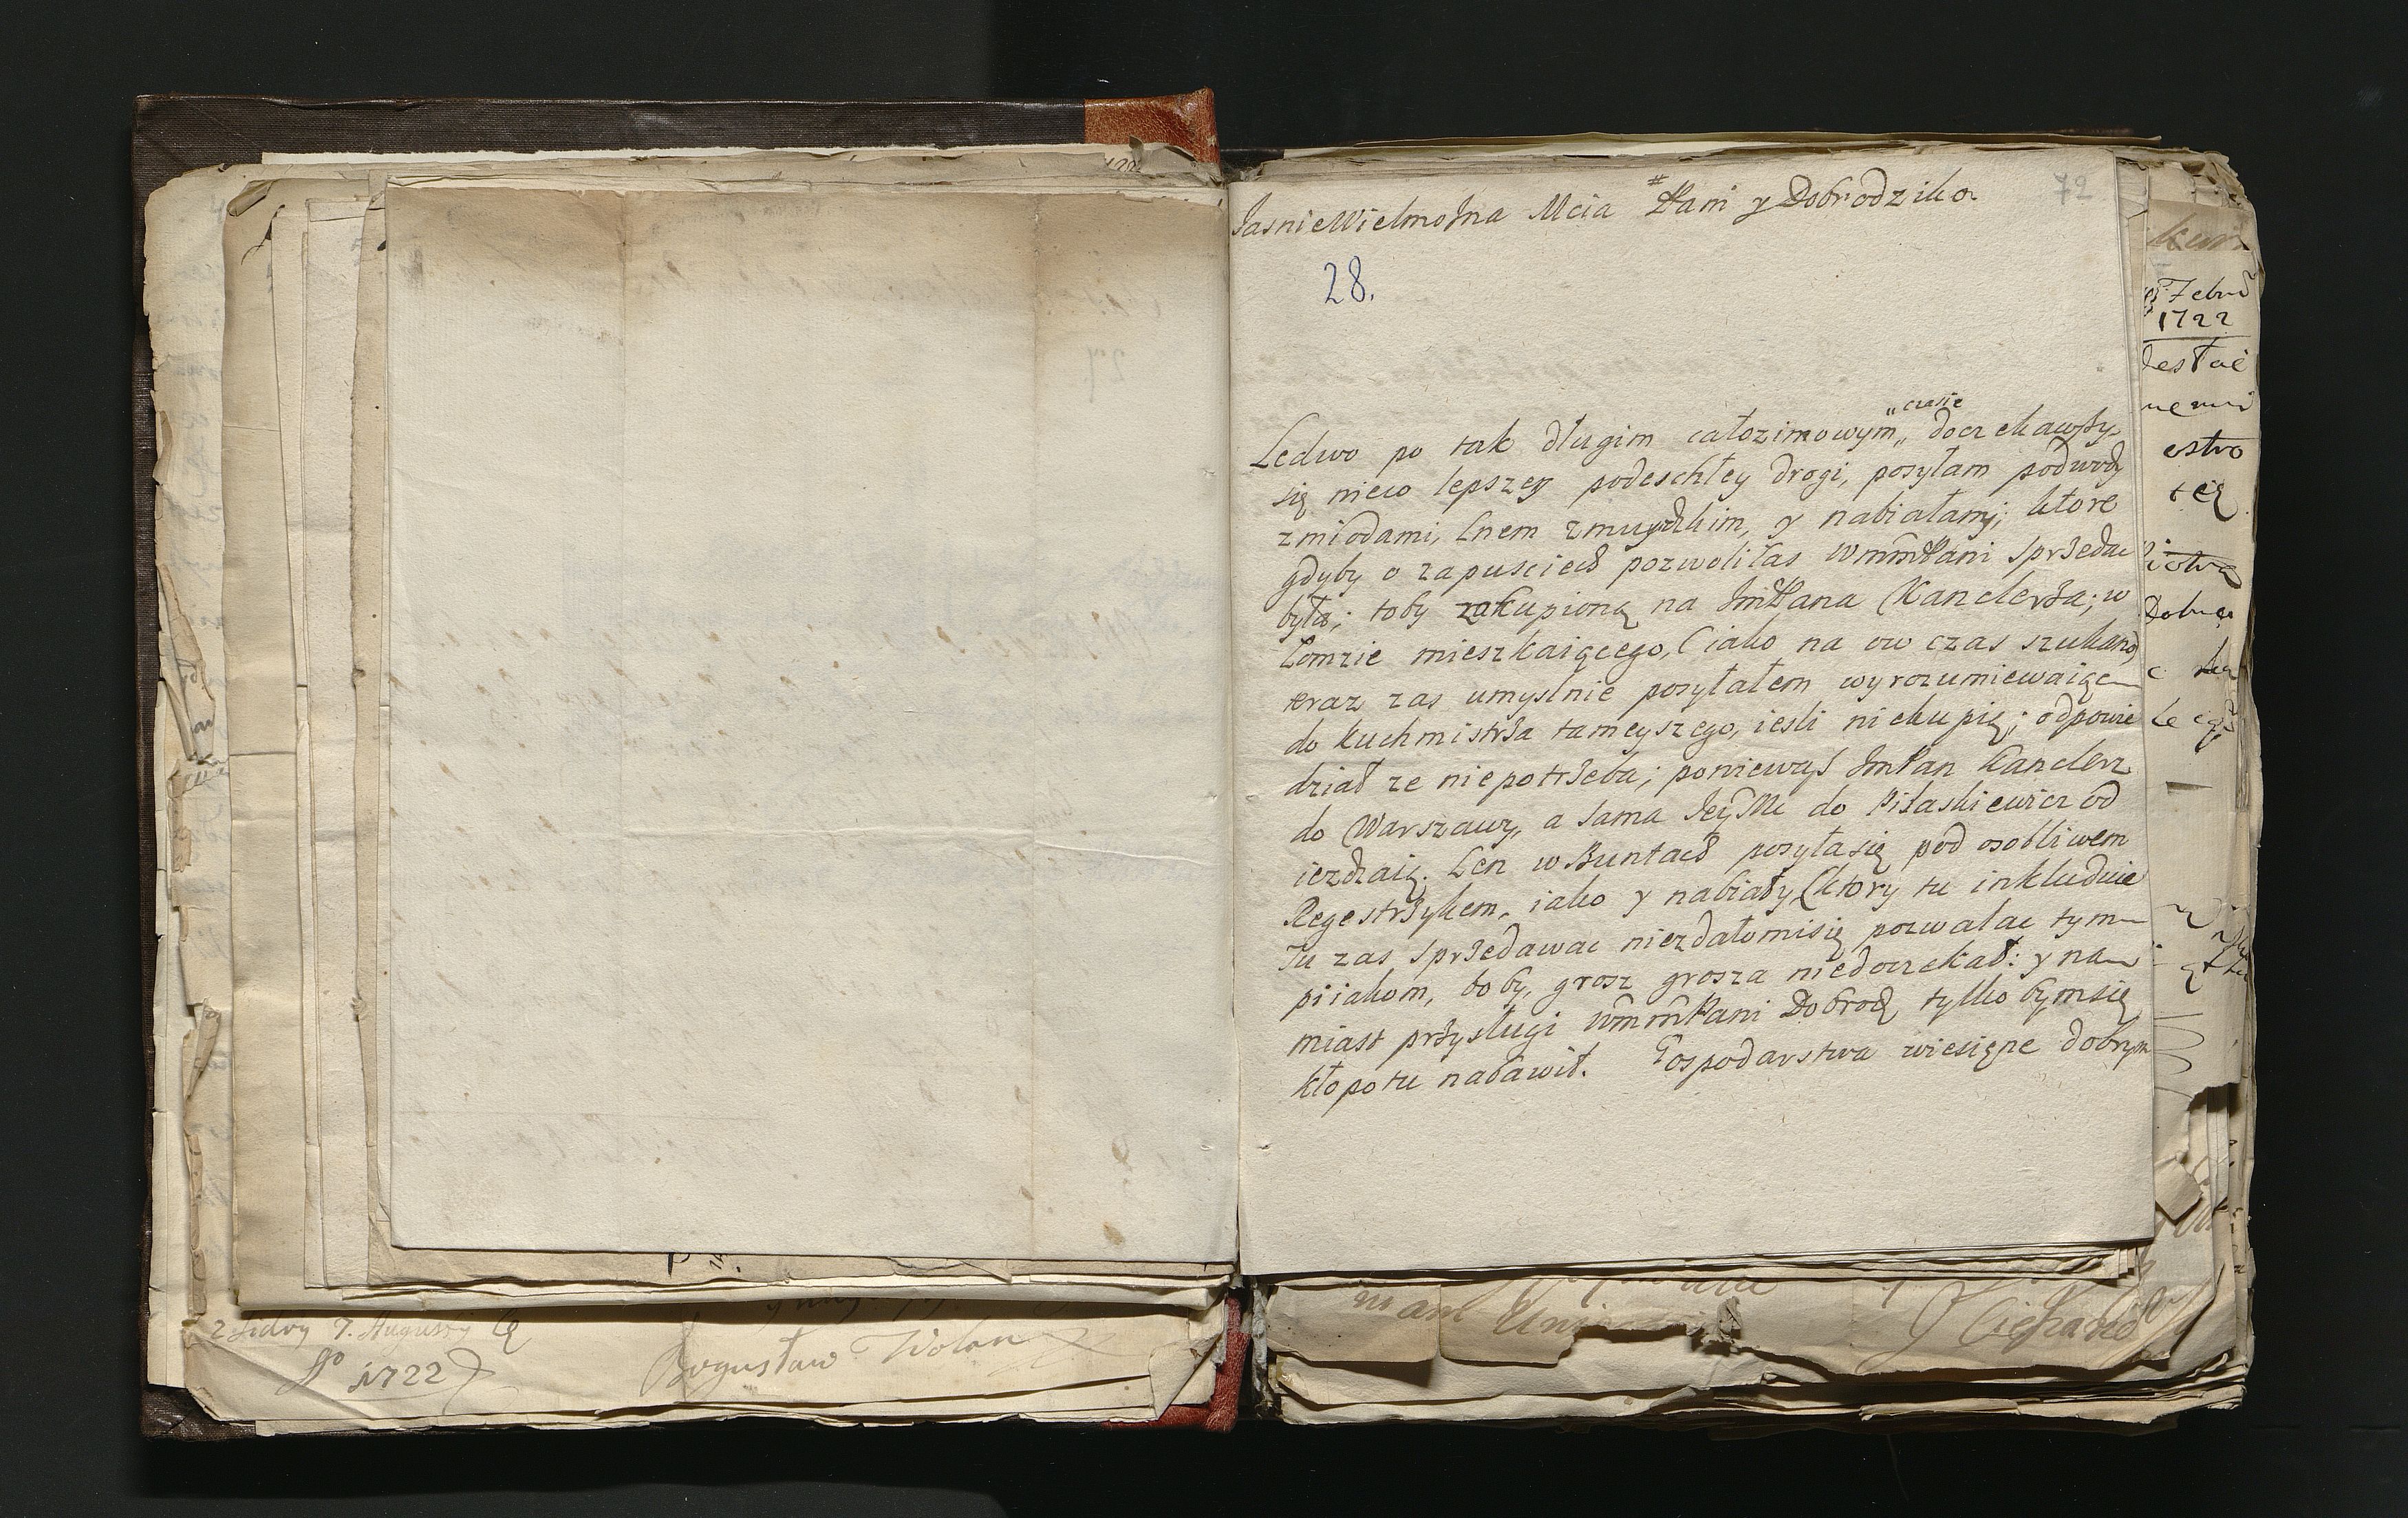 72
JasnieWielmożna Mcia Pani y Dobrodzika
28.
czasie
Ledwo po tak długim całozimowym doczekawszy
się nieco lepszey podeschłey drogi, posyłam podwody
zmiodami, lnem zmuydzkim, y nabiałami; ktore
gdyby o zapusciech pozwoliłas WmmPani sprzedac
była; toby zakupiono na ImPana Kanclerza; w
Łomzie mieszkaiącego, (iako na ow czas szukano)
teraz zas umyslnie posyłałem wyrozumiewaiąc
do kuchmistrza tameyszego, iesli niekupią; odpowie
dział ze niepotrzeba; poniewasz ImPan Kanclerz
do Warszawy, a sama JeyMc do Pilaskiewicz od
iezdzaią. Len w Buntach posyłasię pod osobliwem
Regestrzykem, iako y nabiały, (ktory tu inkluduie
Tu zas sprzedawac niezdałomisię pozwalac tym
piiakom, bo by, grosz grosza niedoczekał: y na
miast przysługi WmmPani Dobrodz tylko bymsię
kłopotu nabawił. Gospodarstwa wiesięne dobrym
Febru
1722
estwo
tę
7. Augusty
1722
Bogusław Wolan